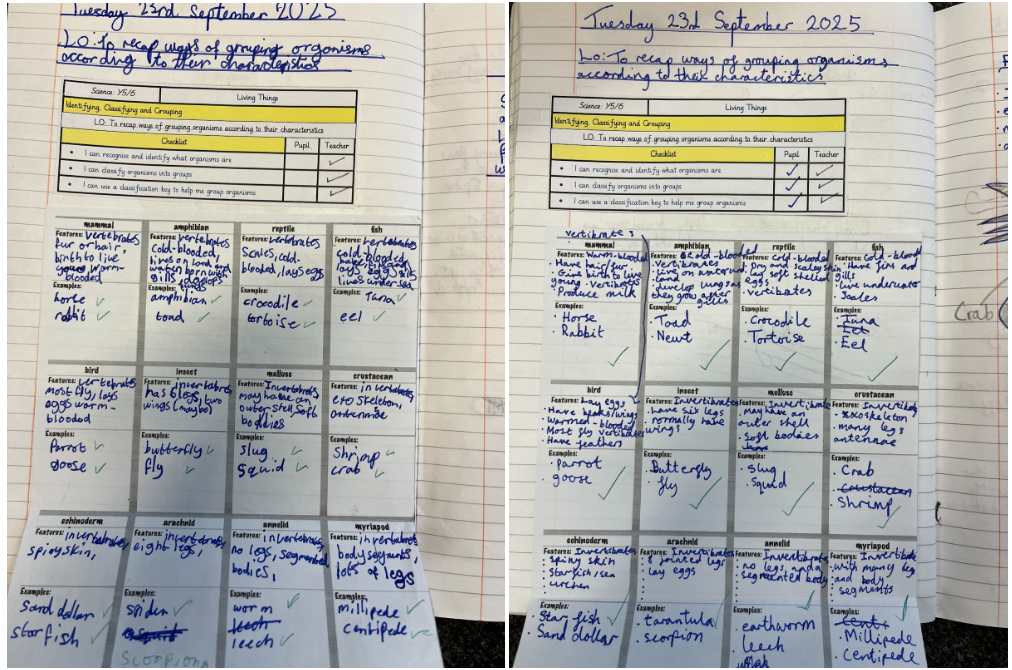 Tuesday 23rd September 2025
LO: To recap ways of grouping organisms
according to their characteristics
Science: Y5/6
Living Things
Identifying, Classifying and Grouping
LO: To recap ways of grouping organisms according to their characteristics
Checklist
Pupil
Teacher
I can recognise and identify what organisms are
I can classify organisms into groups
I can use a classification key to help me group organisms
mammal
Features: Vertebrates
fur or hair,
birth to live
young warm-
blooded
Examples:
horse
rabbit
amphibian
Features: vertebrates
Cold-blooded,
lives on land +
water born with
gills
Examples:
amphibian
toad
reptile
Features: vertebrates
Scales, cold-
blooded, lays eggs
Examples:
crocodile
tortoise
fish
Features: vertebrates
cold-blooded
lays eggs gills
lives under
Examples:
Tuna
eel
bird
Features: vertebrates
most fly, lays
eggs warm-
blooded
Examples:
Parrot
goose
insect
Features: invertebrates
has 6 legs, two
wings (maybe)
Examples:
butterfly
fly
mollusc
Features: Invertebrates
may have an
outer shell soft
bodies
Examples:
slug
squid
crustacean
Features: invertebrates
exo skeleton,
antennae
Examples:
Shrimp
crab
echinoderm
Features: invertebrates,
spiny skin,
Examples:
Sand dollar
star fish
arachnid
Features: invertebrates,
eight legs,
Examples:
spider
Scorpions
annelid
Features: invertebrates,
no legs, segmented
bodies,
Examples:
worm
leech
leech
myriapod
Features: invertebrates,
body segments,
lots of legs
Examples:
millipede
centipede
Tuesday 23rd September 2025
LO: To recap ways of grouping organisms
according to their characteristics
Science: Y5/6
Living Things
Identifying, Classifying and Grouping
LO: To recap ways of grouping organisms according to their characteristics
Checklist
Pupil
Teacher
I can recognise and identify what organisms are
I can classify organisms into groups
I can use a classification key to help me group organisms
vertibrates
mammal
Features: Warm-blooded
Have hair/fur
Give birth to live
young. Vertibrates
Produce milk
Examples:
Horse
Rabbit
amphibian
Features: cold-blooded
vertibrates
live on water and
develop lungs as
they grow after
gills
Examples:
Toad
Newt
reptile
Features: Cold-blooded
Dry and scaley skin
and soft shelled
eggs
vertibrates
Examples:
Crocodile
Tortoise
fish
Features: Cold-blooded
Have fins and
gills
live underwater
Scales
Examples:
Tuna
Eel
Eel
bird
Features: Lay eggs
Have beaks/wings
warmed-blooded
Most fly vertibrates
Have feathers
Examples:
parrot
goose
insect
Features: Invertibrates
have six legs
normally have
wings
Examples:
Butterfly
fly
mollusc
Features: Invertibrates
may have an
outer shell
soft bodies
Examples:
slug
Squid
crustacean
Features: Invertibrates
exoskeleton
many legs
antennae
Examples:
Crab
Crustacean
Shrimp
echinoderm
Features: Invertibrates
spiny skin
starfish/sea
urchen
Examples:
Star fish
Sand dollar
arachnid
Features: Invertibrates
8 jointed legs
lay eggs
Examples:
tarantula
scorpion
annelid
Features: Invertibrates
no legs and a
segmented body
Examples:
earthworm
leech
myriapod
Features: Invertibrates
with many leg
and body
segments
Examples:
Centi
Millipede
Centipede
Crab